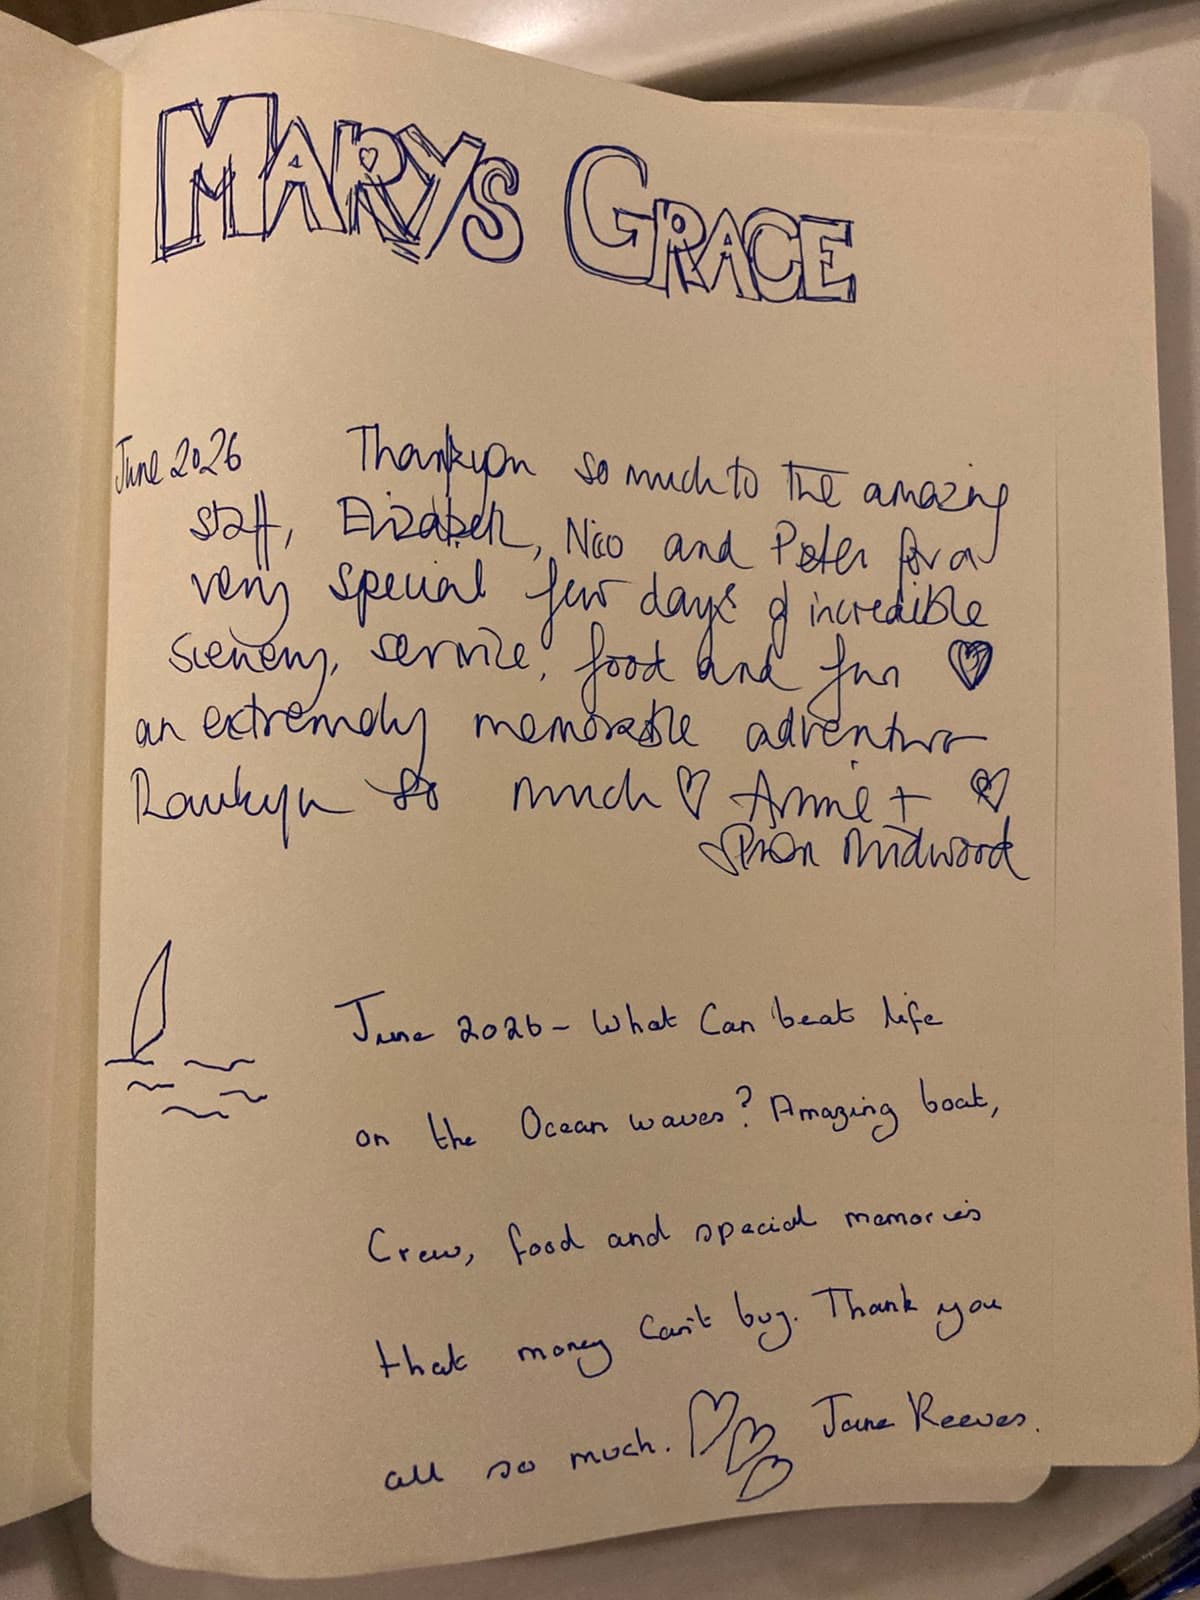 MARYS GRACE
June 2026 Thankyou so much to the amazing
staff, Elizabeth, Nico and Peter for a
very special few days of incredible
scenery, service, food and fun
an extremely memorable adventure
Thankyou so much Annie +
Midwood
June 2026 - What Can beat life
on the Ocean waves? Amazing boat,
Crew, food and special memories
that money Can't buy. Thank you
all so much. Jane Reeves.